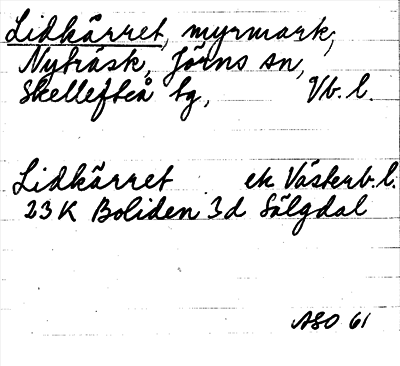 Lidkärret, myrmark,
Nyträsk, Jörns sn,
Skellefteå tg, Vb. l.
Lidkärret ek Västerb. l.
23 K Boliden 3d Sälgdal
ASO 61